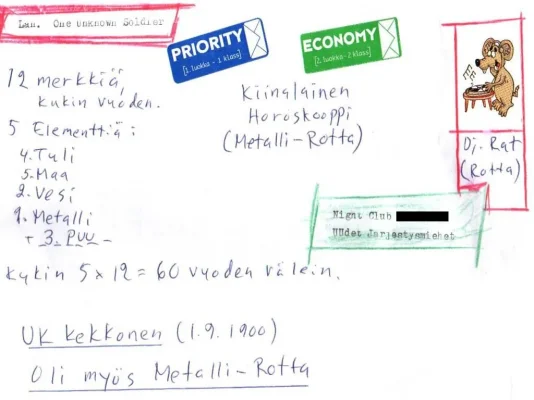 Lau. One Unknown Soldier
PRIORITY
[1. luokka - 1 klass]
ECONOMY
[2. luokka - 2 klass]
12 merkkiä,
kukin vuoden.
5 Elementtiä:
4. Tuli
5. Maa
2. Vesi
1. Metalli
+ 3. Puu -
Kiinalainen
Horoskooppi
(Metalli-Rotta)
Dj. Rat
(Rotta)
Night Club
UUdet Jarjestysmiehet
Kukin 5 x 12 = 60 vuoden välein.
UK Kekkonen (1.9.1900)
Oli myös Metalli-Rotta